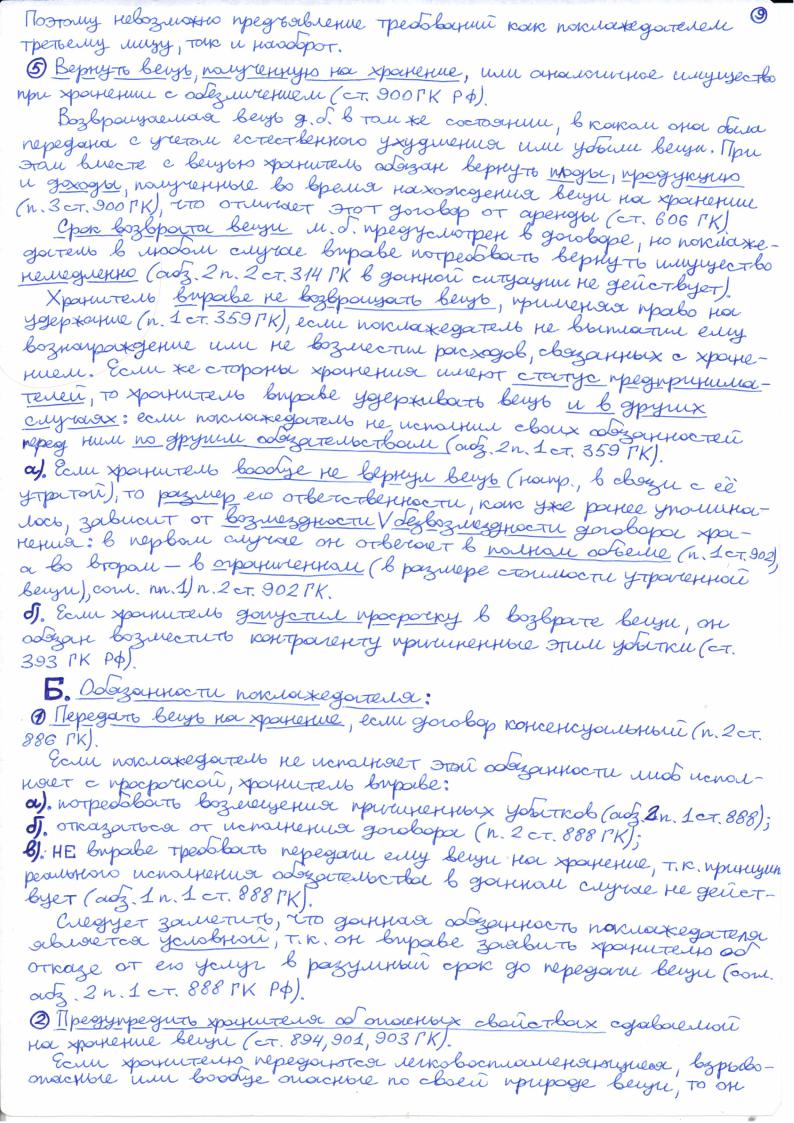 9
Поэтому невозможно предъявление требований как поклажедателем
третьему лицу, так и наоборот.
5 Вернуть вещь, полученную на хранение, или аналогичное имущество
при хранении с обезличением (ст. 900 ГК РФ).
Возвращаемая вещь д.б. в том же состоянии, в каком она была
передана с учетом естественного ухудшения или убыли вещи. При
этом вместе с вещью хранитель обязан вернуть плоды, продукцию
и доходы, полученные во время нахождения вещи на хранении
(п. 3 ст. 900 ГК), что отличает этот договор от аренды (ст. 606 ГК)
Срок возврата вещи м.б. предусмотрен в договоре, но поклаже-
датель в любом случае вправе потребовать вернуть имущество
немедленно (абз. 2 п. 2 ст. 314 ГК в данной ситуации не действует).
Хранитель вправе не возвращать вещь, применяя право на
удержание (п. 1 ст. 359 ГК), если поклажедатель не выплатил ему
вознаграждение или не возместил расходов, связанных с хране-
нием. Если же стороны хранения имеют статус предпринима-
телей, то хранитель вправе удерживать вещь и в других
случаях: если поклажедатель не исполнил своих обязанностей
перед ним по другим обязательствам (абз. 2 п. 1 ст. 359 ГК).
а). Если хранитель вообще не вернул вещь (напр., в связи с её
утратой), то размер его ответственности, как уже ранее упомина-
лось, зависит от возмездности V безвозмездности договора хра-
нения: в первом случае он отвечает в полном объеме (п. 1 ст. 902),
а во втором — в ограниченном (в размере стоимости утраченной
вещи), согл. пп. 1) п. 2 ст. 902 ГК.
б). Если хранитель допустил просрочку в возврате вещи, он
обязан возместить контрагенту причиненные этим убытки (ст.
393 ГК РФ).
Б. Обязанности поклажедателя:
1 Передать вещь на хранение, если договор консенсуальный (п. 2 ст.
886 ГК).
Если поклажедатель не исполняет этой обязанности либо испол-
няет с просрочкой, хранитель вправе:
а). потребовать возмещения причиненных убытков (абз. 2 п. 1 ст. 888);
б). отказаться от исполнения договора (п. 2 ст. 888 ГК);
в). НЕ вправе требовать передачи ему вещи на хранение, т.к. принцип
реального исполнения обязательства в данном случае не дейст-
вует (абз. 1 п. 1 ст. 888 ГК).
Следует заметить, что данная обязанность поклажедателя
является условной, т.к. он вправе заявить хранителю об
отказе от его услуг в разумный срок до передачи вещи (согл.
абз. 2 п. 1 ст. 888 ГК РФ).
2 Предупредить хранителя об опасных свойствах сдаваемой
на хранение вещи (ст. 894, 901, 903 ГК).
Если хранителю передаются легковоспламеняющиеся, взрыво-
опасные или вообще опасные по своей природе вещи, то он